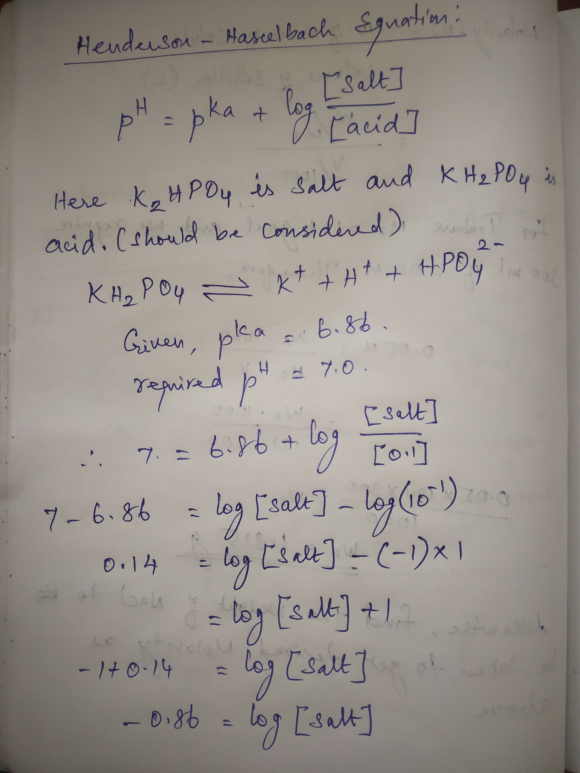 Henderson - Hasselbach Equation:
pH = pka + log [salt]/[acid]
Here K2HPO4 is salt and KH2PO4 is
acid. (should be considered)
KH2PO4 ⇌ K+ + H+ + HPO4 2-
Given, pka = 6.86.
required pH = 7.0.
∴ 7 = 6.86 + log [salt]/[0.1]
7 - 6.86 = log [salt] - log(10^-1)
0.14 = log [salt] - (-1) x 1
= log [salt] + 1
-1+0.14 = log [salt]
-0.86 = log [salt]